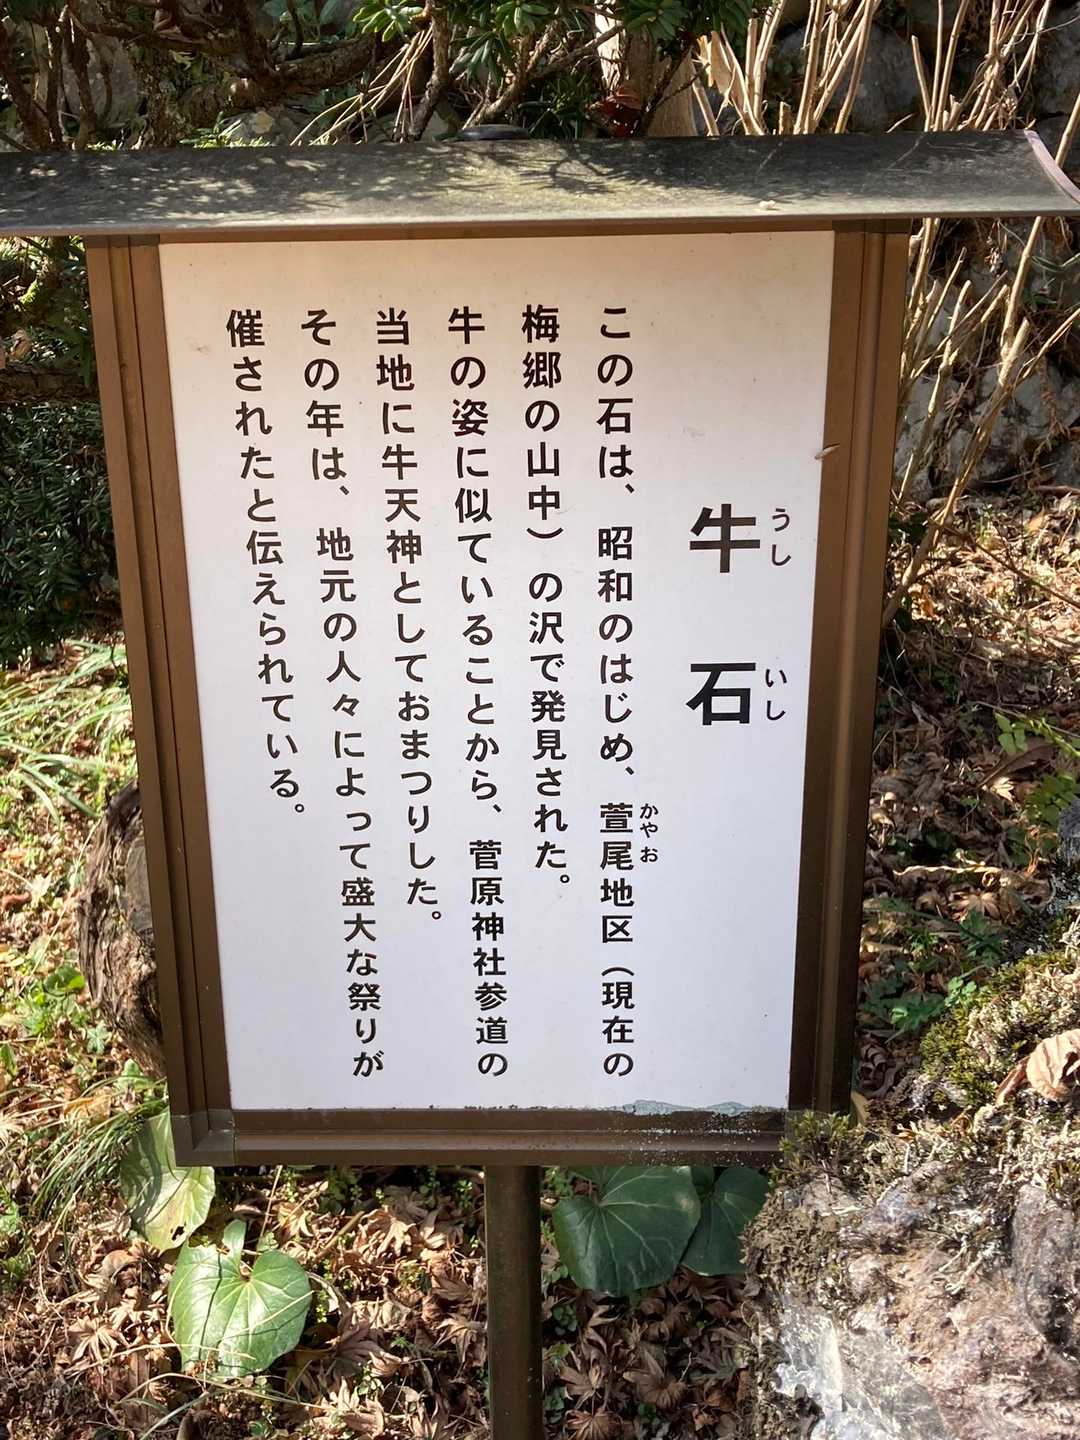 牛石
うしいし
この石は、昭和のはじめ、萱尾地区（現在の
かやお
梅郷の山中）の沢で発見された。
牛の姿に似ていることから、菅原神社参道の
当地に牛天神としておまつりした。
その年は、地元の人々によって盛大な祭りが
催されたと伝えられている。